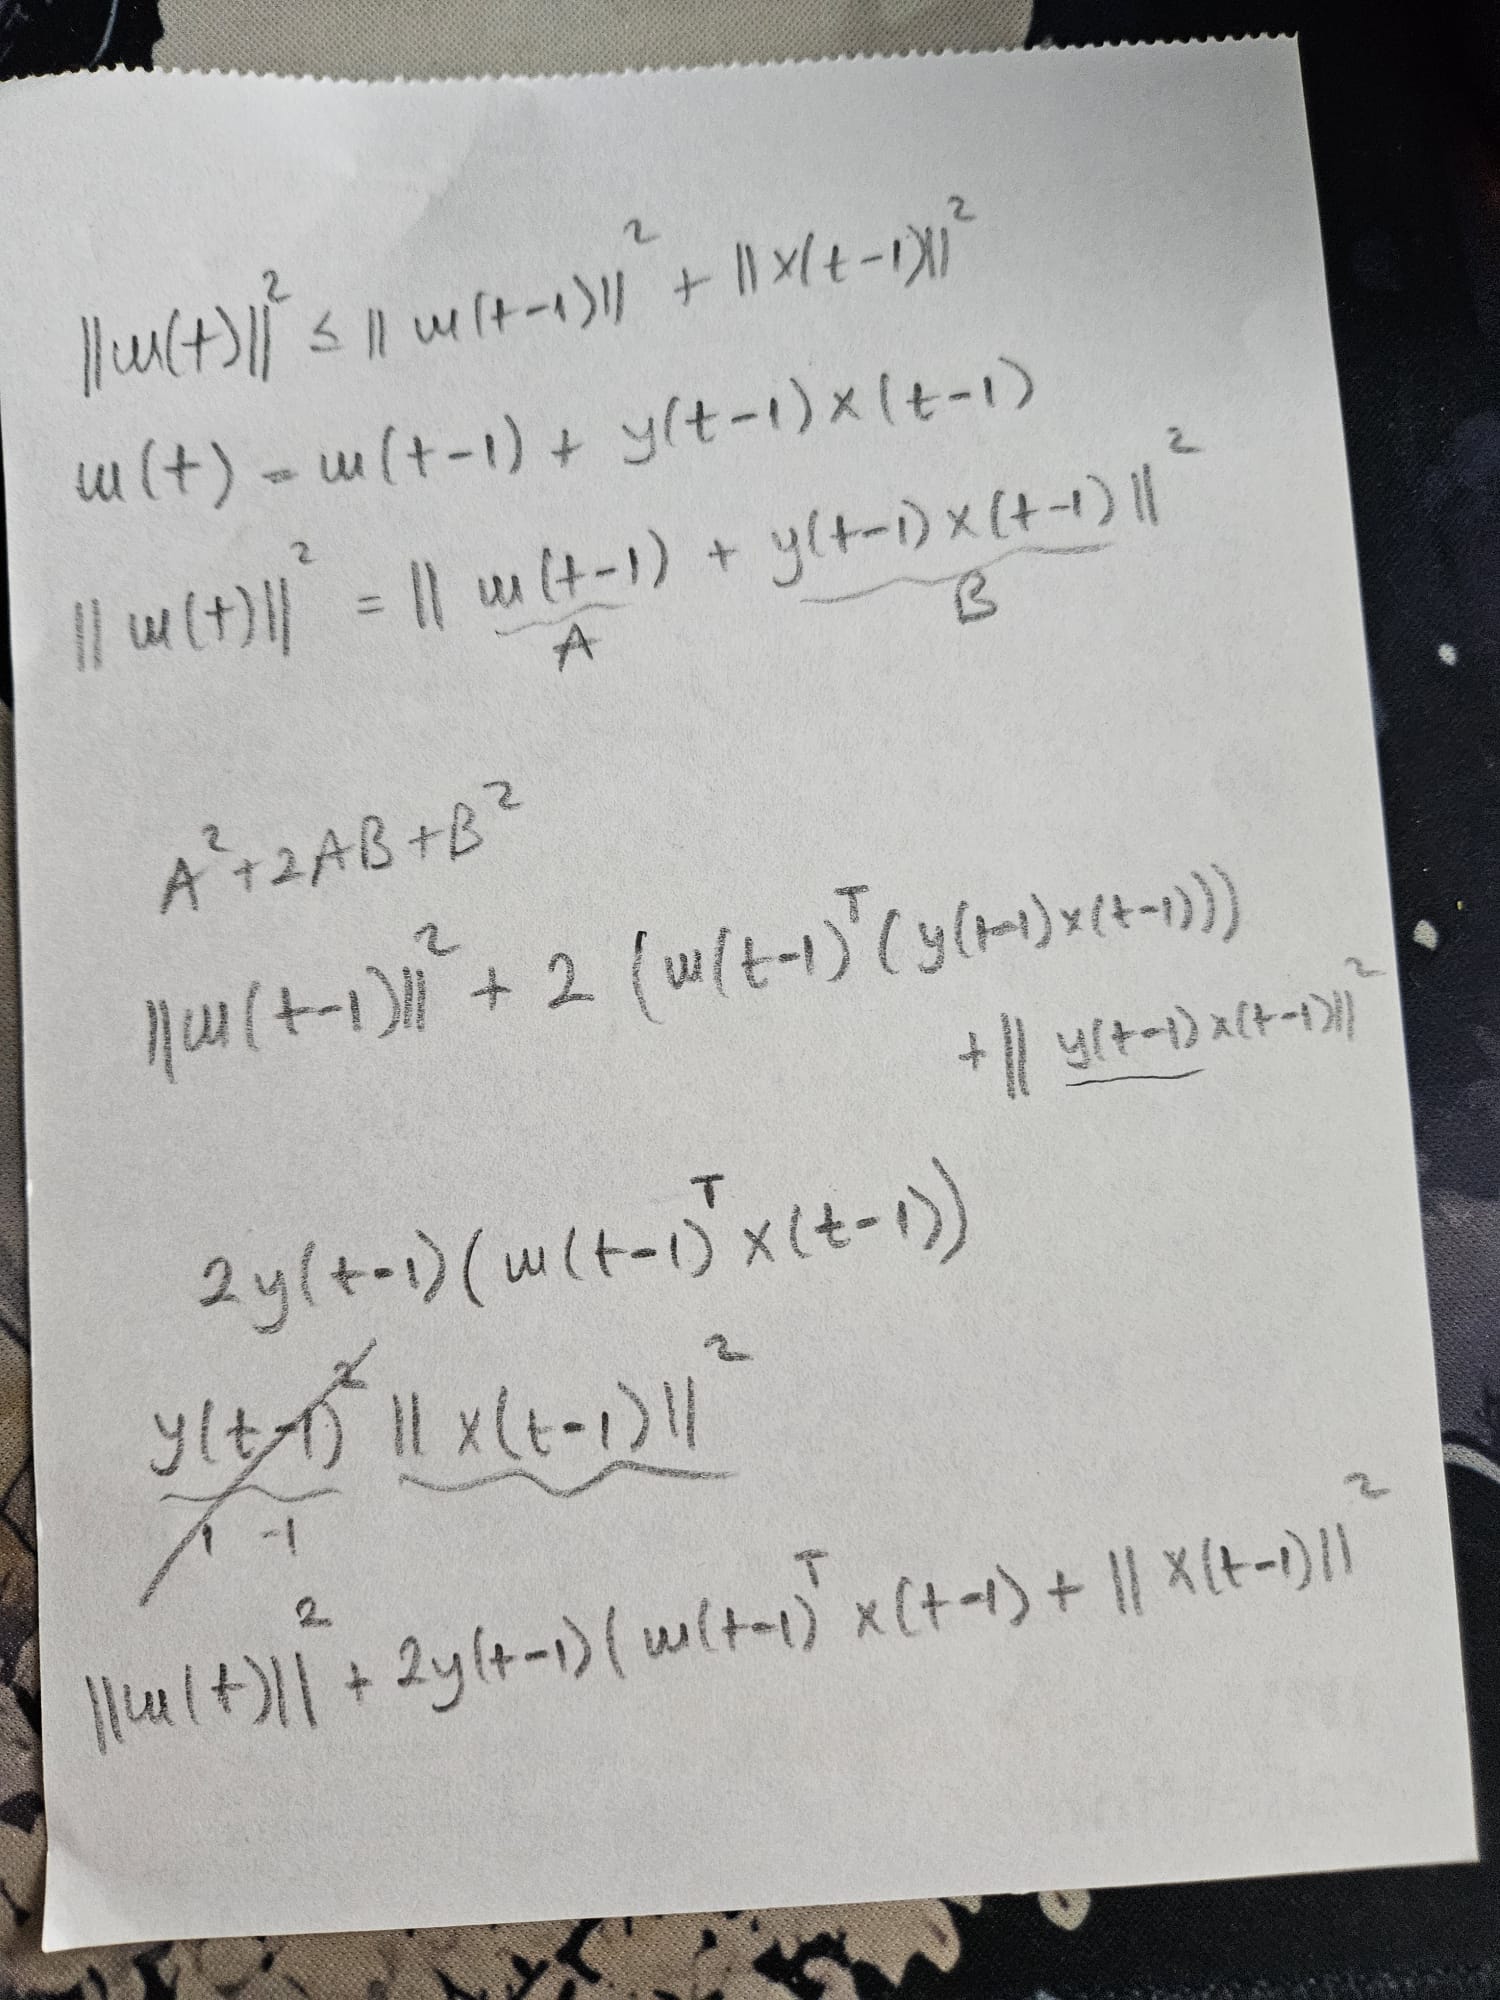 ||w(t)||² ≤ ||w(t-1)||² + ||x(t-1)||²
w(t) = w(t-1) + y(t-1)x(t-1)
||w(t)||² = ||w(t-1) + y(t-1)x(t-1)||²
A B
A²+2AB+B²
||w(t-1)||² + 2(w(t-1)ᵀ(y(t-1)x(t-1)))
+||y(t-1)x(t-1)||²
2y(t-1)(w(t-1)ᵀx(t-1))
y(t-1)² ||x(t-1)||²
1 -1
||w(t)||² + 2y(t-1)(w(t-1)ᵀx(t-1) + ||x(t-1)||²